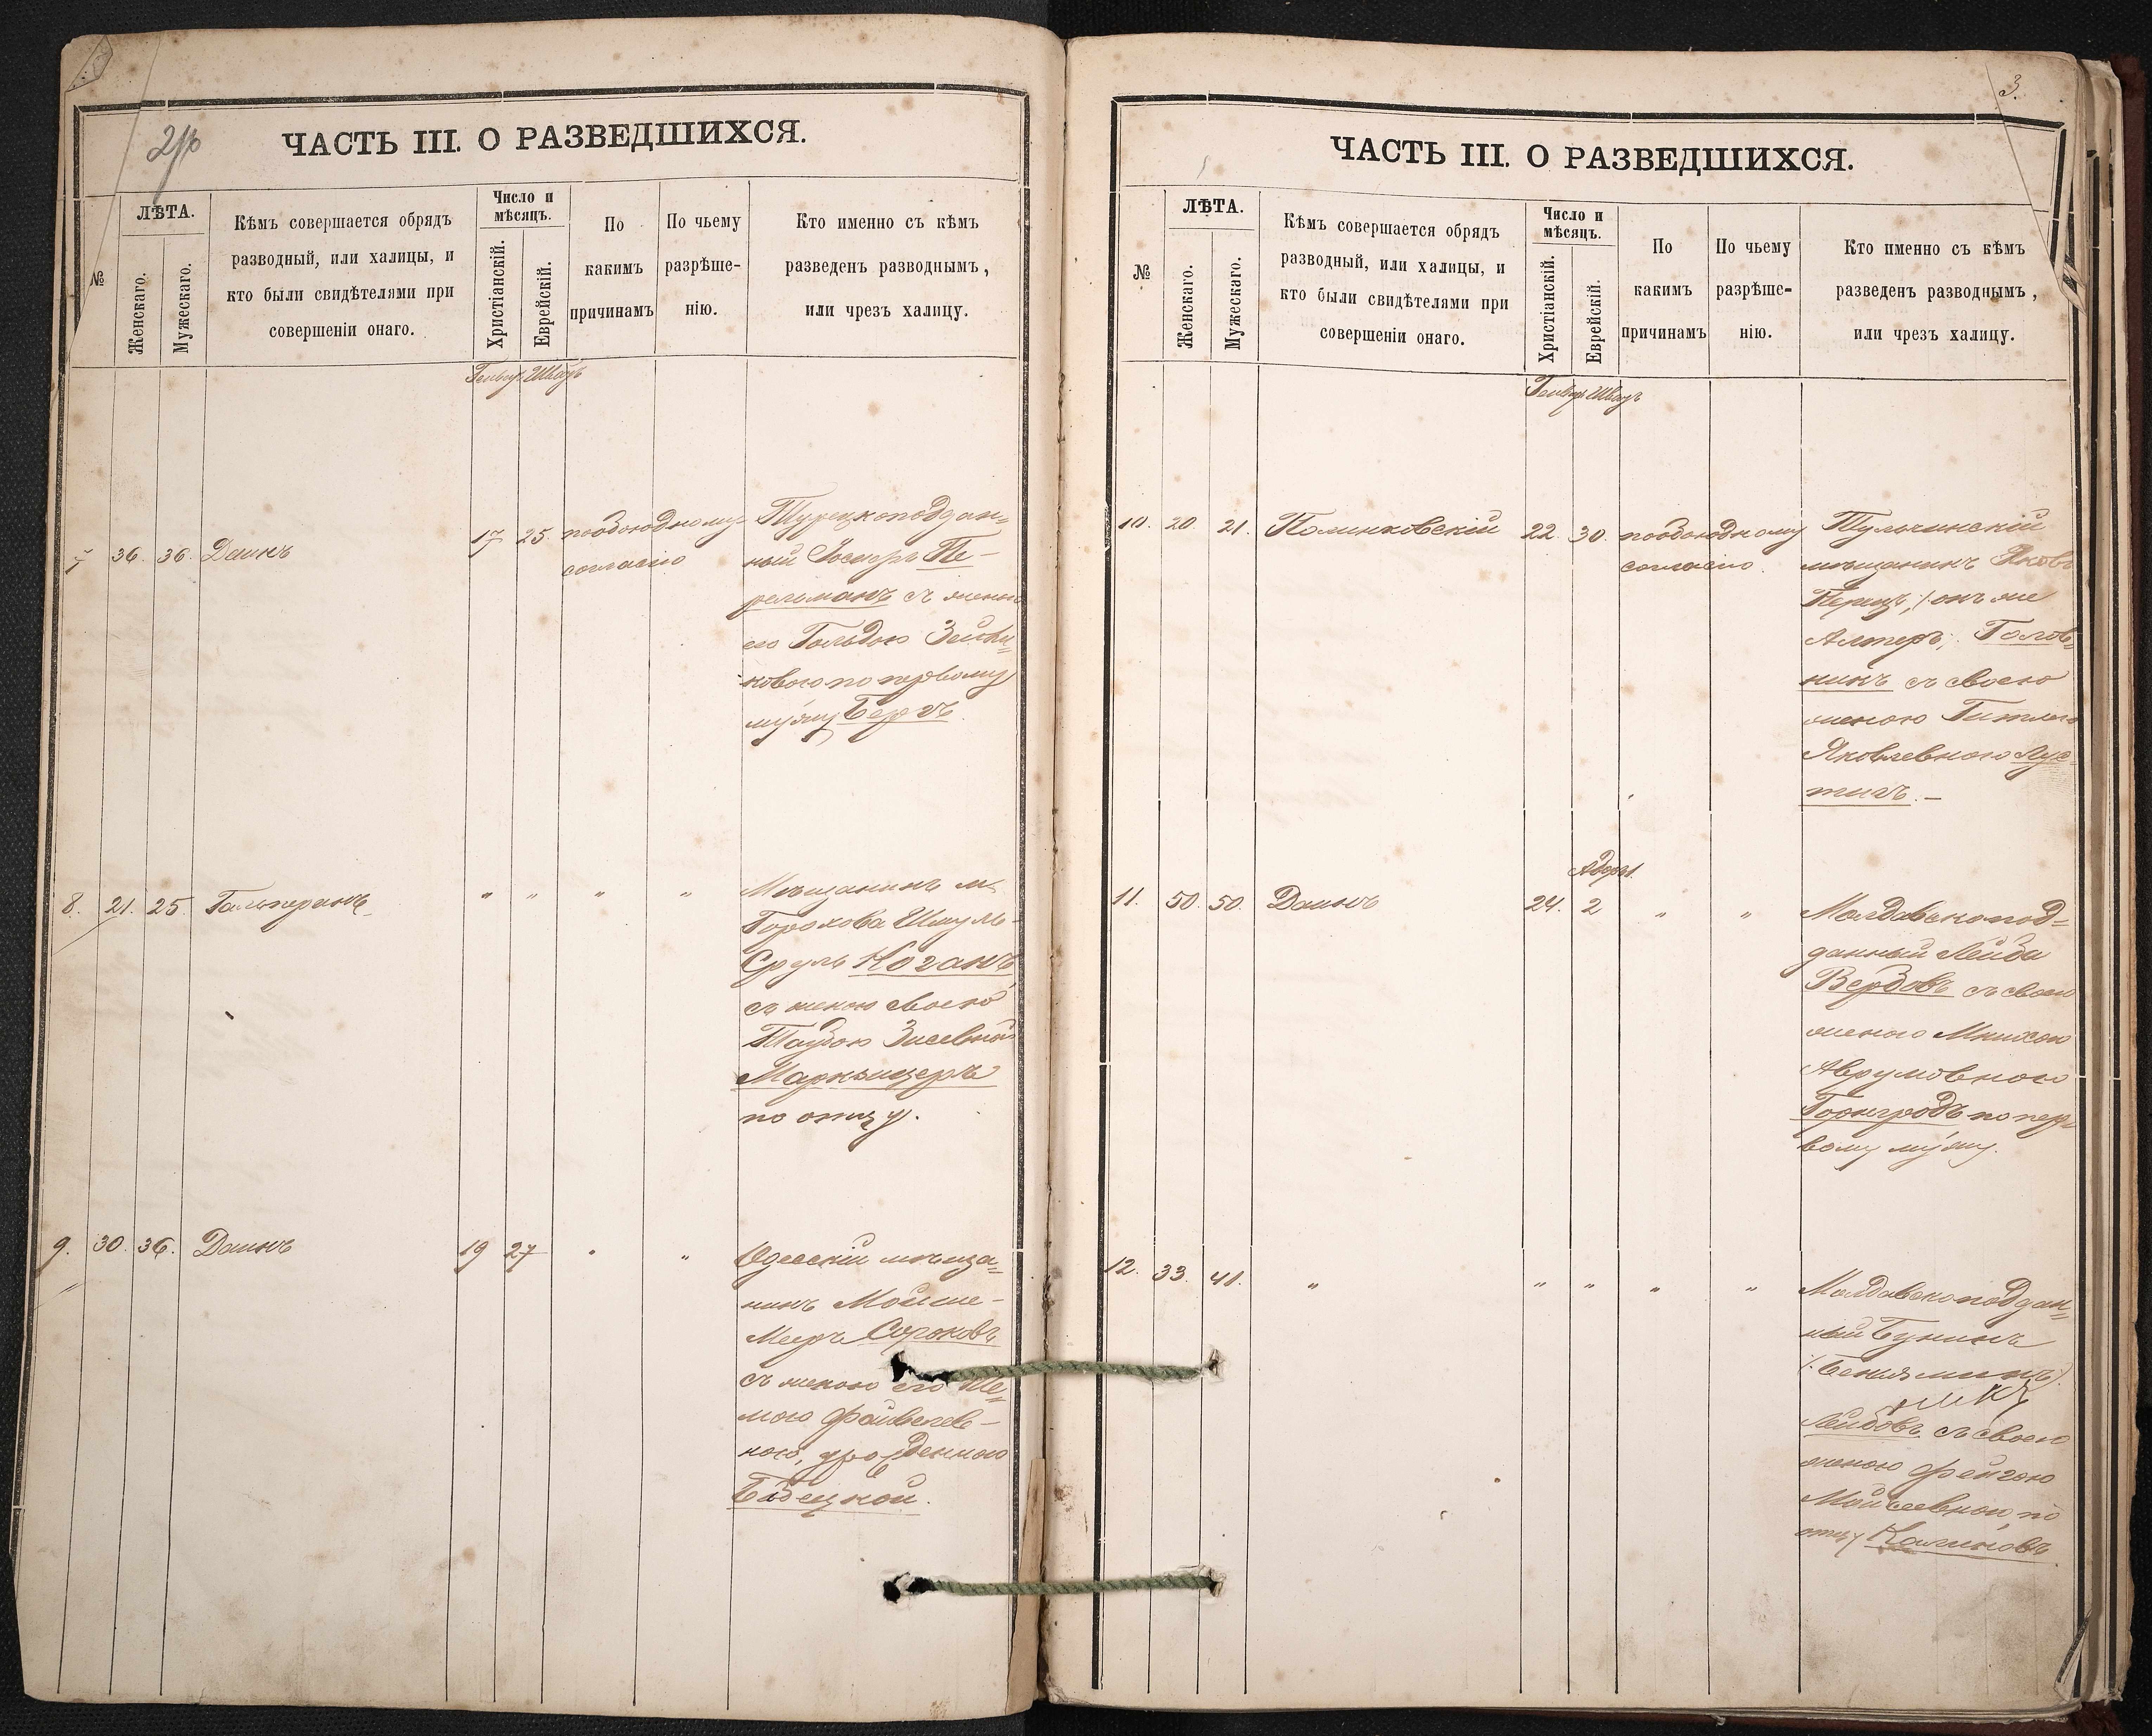 ЧАСТЬ III. О РАЗВЕДШИХСЯ.
№
ЛѢТА.
Женскаго.
Мужескаго.
Кѣмъ совершается обрядъ
разводный, или халицы, и
кто были свидѣтелями при
совершеніи онаго.
Число и
мѣсяцъ.
Христіанскій.
Еврейскій.
По
какимъ
причинамъ
По чьему
разрѣше-
нію.
Кто именно съ кѣмъ
разведенъ разводнымъ,
или чрезъ халицу.
Генвар Шватъ
7 36. 36. Даинъ 17 25 пообоюдному
согласію
Турецкоподдан=
ный Іосифъ Пе-
рельманъ съ женою
его Гольдою Зейли=
ковою по первому
мужу Бергъ
8. 21. 25. Гальперинъ " " " "
Мѣщанинъ м.
Горохова Шмуль-
Сруль Коганъ
съ женою своею
Таубою Зиселевной
Маркъшеръ
по отцу.
9. 30. 36. Даинъ 19 27 " "
Одесскій мѣща=
нинъ Мойше-
Мееръ Сороковъ
съ женою его Ше=
мою Файвелев-
ною, урожденною
Бабецкой.
3.
ЧАСТЬ III. О РАЗВЕДШИХСЯ.
№
ЛѢТА.
Женскаго.
Мужескаго.
Кѣмъ совершается обрядъ
разводный, или халицы, и
кто были свидѣтелями при
совершеніи онаго.
Число и
мѣсяцъ.
Христіанскій.
Еврейскій.
По
какимъ
причинамъ
По чьему
разрѣше-
нію.
Кто именно съ кѣмъ
разведенъ разводнымъ,
или чрезъ халицу.
Генвар Шватъ
10. 20. 21. Полинковскій 22. 30. пообоюдному
согласію.
Тульчинскій
мѣщанинъ Яковъ
Перецъ, /: онъ же
Алтеръ, Голов=
нинъ съ своею
женою Гитлею
Яковлевною Лук=
тигъ. –
Адаръ 1.
11. 50. 50. Даинъ 24. 2 " "
Молдавскопод=
данный Лейба
Вербовъ съ своею
женою Мнихою
Аврумовною
Горнгродъ по пер
вому мужу.
12. 33. 41. " " " " "
Молдавскоподдан=
ный Бунинъ
/: Беніяминъ:/
Лейбовъ съ своею
женою Фейгою
Мойсеевной, по
отцу Калиновъ